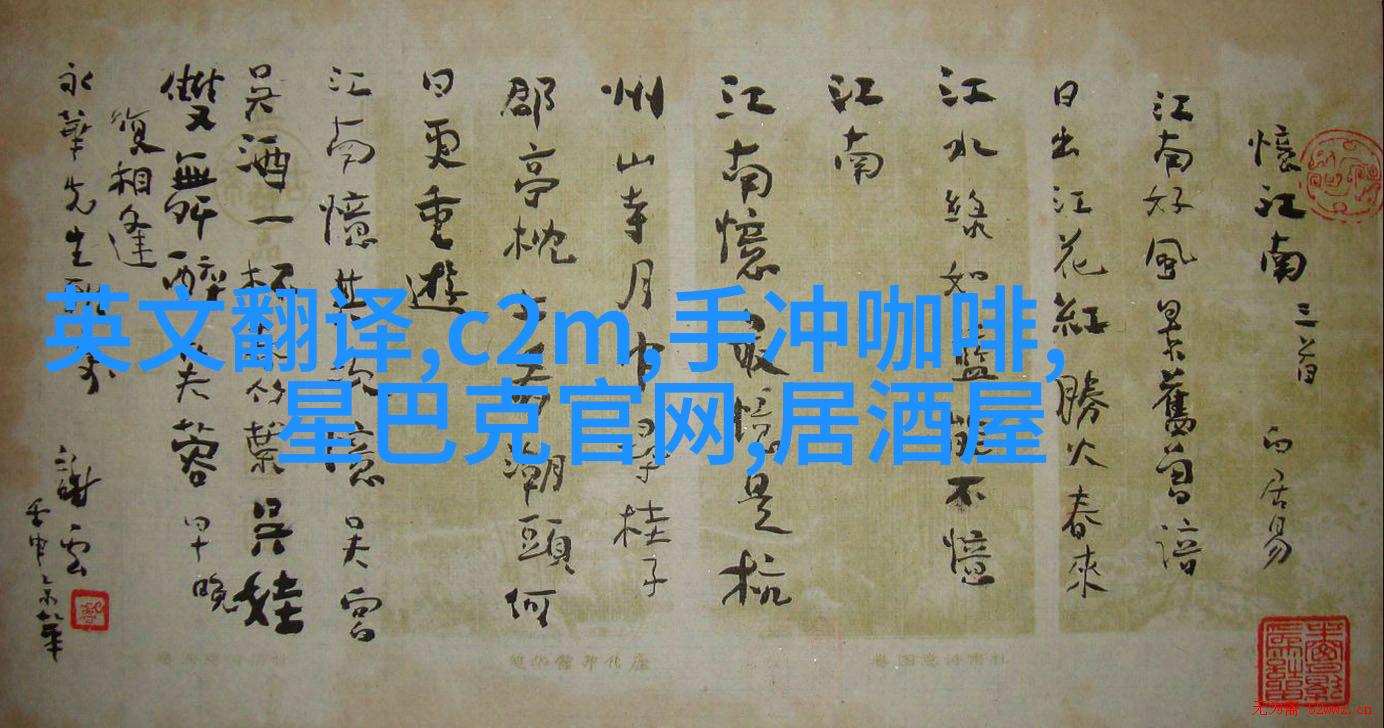 憶江南 三首 白居易
江南好風景舊曾諳
日出江花紅勝火春來
江水綠如藍能不憶
江南
江南憶最憶是杭
州山寺月中尋桂子
郡亭枕上看潮頭何
日更重遊
江南憶其次憶吳宮
吳酒一杯春竹葉吳娃
雙舞醉芙蓉早晚
復相逢
永華先生
謝雲
英文翻译,c2m,手冲咖啡,
星巴克官网,居酒屋